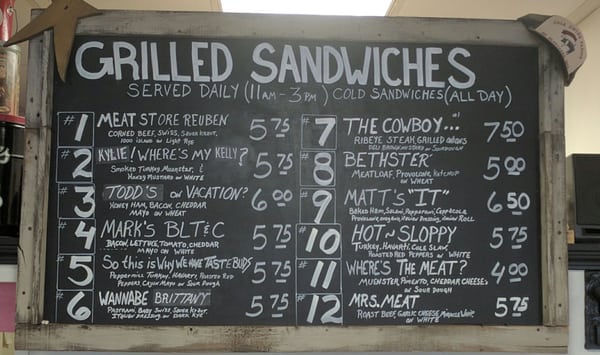 GRILLED SANDWICHES
SERVED DAILY (11AM - 3PM) COLD SANDWICHES (ALL DAY)
#1 MEAT STORE REUBEN 5 75
CORNED BEEF, SWISS, SAUER KRAUT,
1000 ISLAND ON LIGHT RYE
#2 KYLIE! WHERE'S MY KELLY? 5 75
SMOKED TURKEY, MUENSTER, &
HONEY MUSTARD ON WHITE
#3 TODD'S ON VACATION? 6 00
HONEY HAM, BACON, CHEDDAR
MAYO ON WHEAT
#4 MARK'S BLT & C 5 75
BACON, LETTUCE, TOMATO, CHEDDAR
MAYO ON WHITE
#5 So this is WHY WE HAVE TASTE BUDS 5 75
PEPPERMILL TURKEY, HAVARTI, ROASTED RED
PEPPERS, CAJUN MAYO ON SOUR DOUGH
#6 WANNABE BRITTANY 5 75
PASTRAMI, BABY SWISS, SAUER KRAUT,
ITALIAN DRESSING ON DARK RYE
#7 THE COWBOY... 7 50
RIBEYE STEAK, GRILLED ONIONS
DELI MUSTARD ON SOURDOUGH
#8 BETHSTER 5 00
MEATLOAF, PROVOLONE, KETCHUP
ON WHEAT
#9 MATT'S "IT" 6 50
BAKED HAM, SALAMI, PEPPERONI, CAPPACOLA
PROVOLONE, ONION ROLL
#10 HOT N SLOPPY 5 75
TURKEY, HAVARTI, COLE SLAW,
ROASTED RED PEPPERS ON WHITE
#11 WHERE'S THE MEAT? 4 00
MUENSTER, PIMENTO, CHEDDAR CHEESES
ON SOUR DOUGH
#12 MRS. MEAT 5 75
ROAST BEEF, GARLIC CHEESE, MIRACLE WHIP
ON WHITE